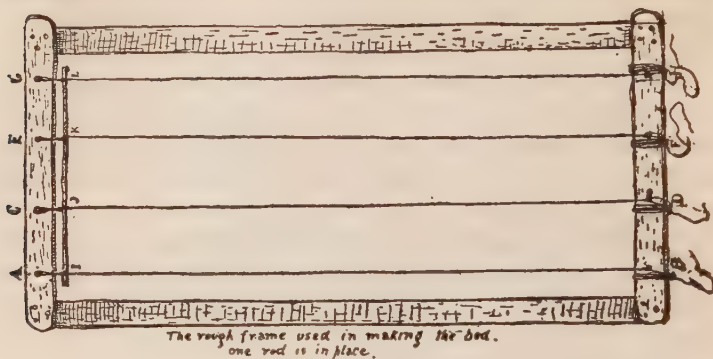 G L
E K F
C J D
A I B
The rough frame used in making the bed.
one rod is in place.